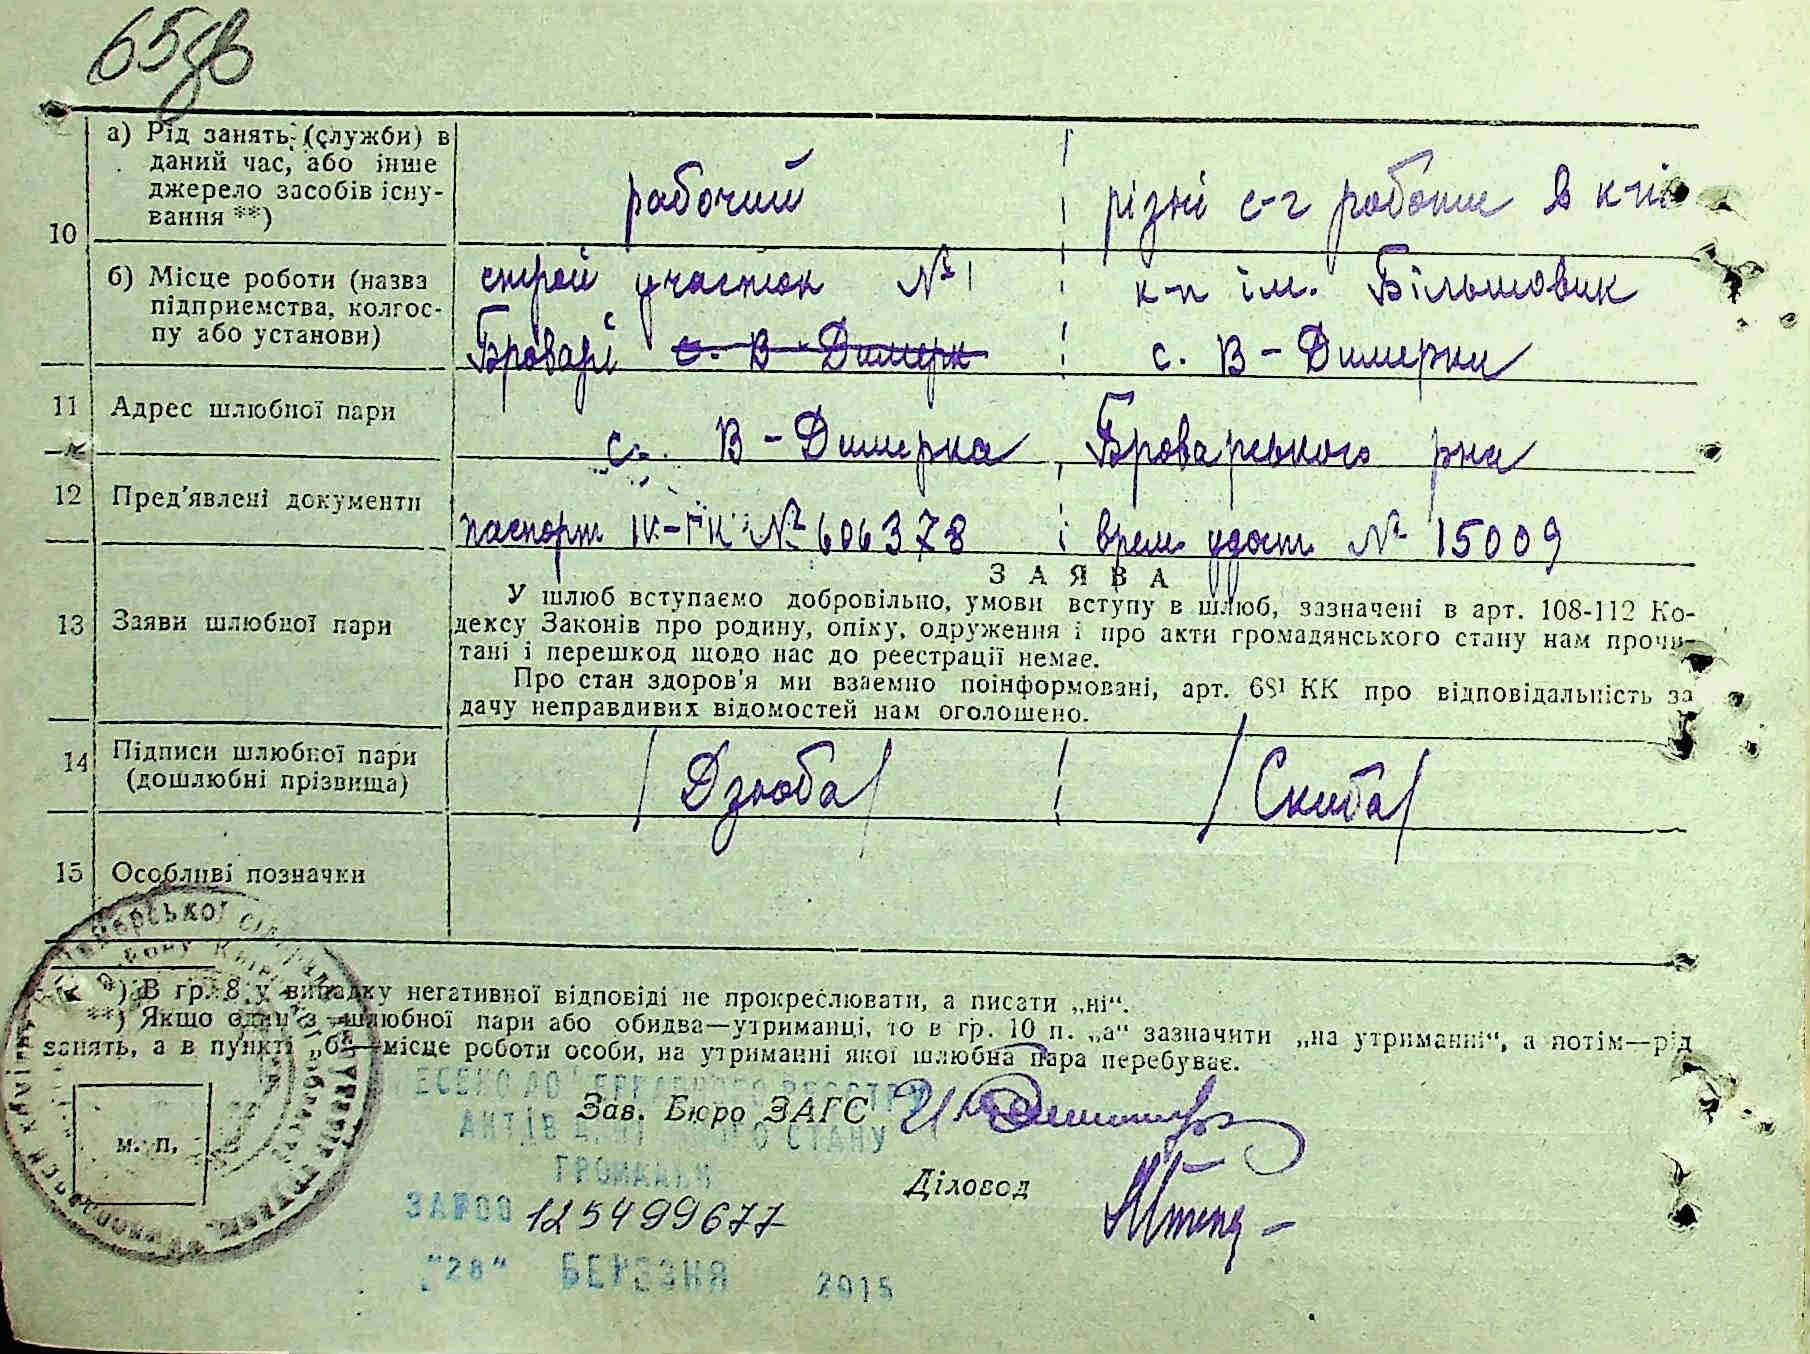 65 зв
10
а) Рід занять (служби) в
даний час, або інше
джерело засобів існу-
вання **)
рабочий
різні с-г роботи в к-пі
б) Місце роботи (назва
підприємства, колгос-
пу або установи)
строй участок № 1
Броварі с. В-Димерк
к-п ім. Більшовик
с. В-Димерки
11 Адрес шлюбної пари
с. В-Димерка, Броварського рна
12 Пред'явлені документи
паспорт № 606378
врем удост № 15009
13 Заяви шлюбної пари
ЗАЯВА
У шлюб вступаємо добровільно, умови вступу в шлюб, зазначені в арт. 108-112 Ко-
дексу Законів про родину, опіку, одруження і про акти громадянського стану нам прочи-
тані і перешкод щодо нас до реєстрації немає.
Про стан здоров'я ми взаємно поінформовані, арт. 68¹ КК про відповідальність за
дачу неправдивих відомостей нам оголошено.
14 Підписи шлюбної пари
(дошлюбні прізвища)
/ Дзюба /
/ Скиба /
15 Особливі позначки
*) В гр. 8 у випадку негативної відповіді не прокреслювати, а писати „ні“.
**) Якщо один з шлюбної пари або обидва—утриманці, то в гр. 10 п. „а“ зазначити „на утриманні“, а потім—рід
занять, а в пункті „б“—місце роботи особи, на утриманні якої шлюбна пара перебуває.
Зав. Бюро ЗАГС
АКТІВ СТАНУ
ГРОМАДЯН
Діловод
125499677
"28" БЕРЕЗНЯ 2015
м. п.